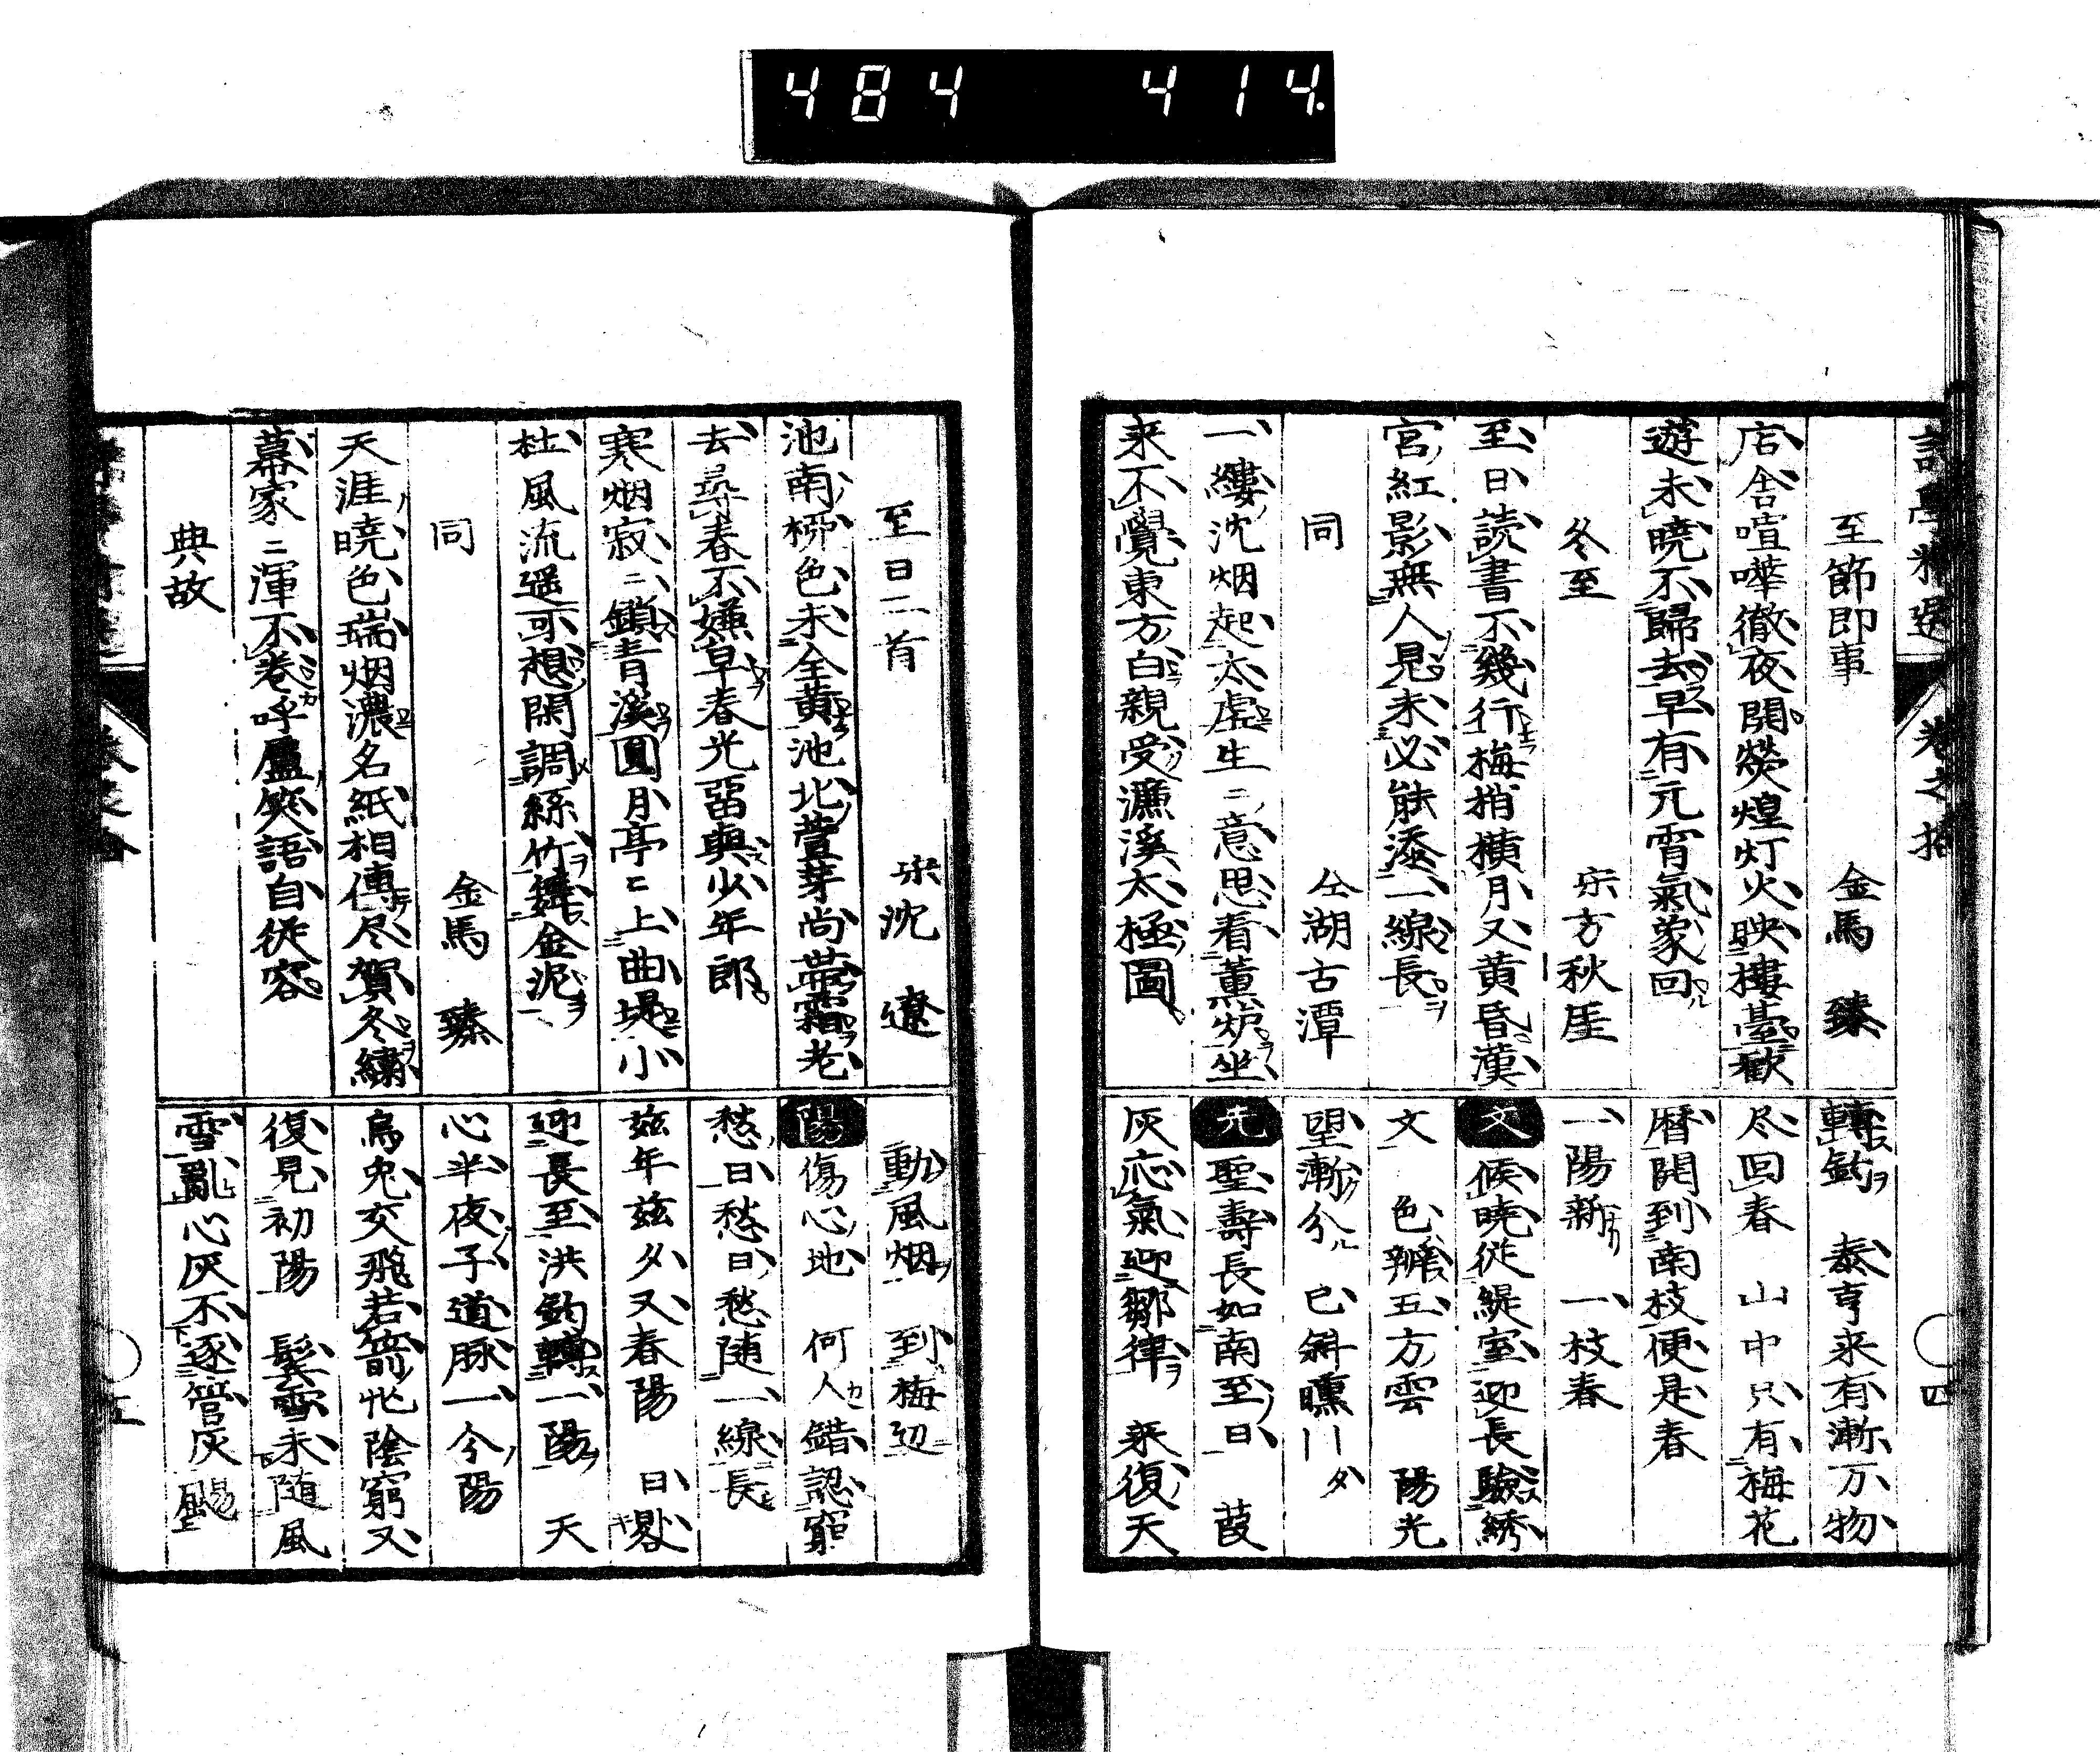 484 414.
至節即事 金馬 臻
店舎喧嘩徹夜開熒煌灯火映樓臺歓
遊未暁不歸去早有元宵氣象回
冬至 宋方秋厓
至日読書不幾行梅梢横月又黄昏漢
宮紅影無人見未必能添一線長
同 仝湖古潭
一縷沈烟起太虚生ニ意思看薫炉坐
来不覺東方白親受濂溪太極圖
轉鈞 泰亨来有漸万物
尽回春 山中只有梅花
暦開到南枝便是春
一陽新 一枝春
文 候暁従緹室迎長驗綉
文 色辨五方雲 陽光
望漸分 已斜曛 夕
元 聖壽長如南至日 葭
灰応氣迎鄒律 来復天
卷之拾
四
至日二首 宋沈 遼
池南柳色未全黄池北萱芽尚帶霜老
去尋春不嫌早春光留與少年郎
寒烟寂ニ鎖青溪圓月亭ニ上曲堤小
杜風流遥可想閑調絲竹舞金泥
同 金馬 臻
天涯暁色瑞烟濃名紙相傳尽賀冬繍
幕家ニ渾不巻呼盧笑語自従容
典故
動風烟 到梅辺
陽 傷心地 何人錯認窮
愁日愁日愁随一線長
茲年茲夕又春陽 日晷
迎長至洪鈞轉一陽 天
心半夜子道脉一今陽
烏兔交飛若箭忙陰窮又
復見初陽 鬓雪未随風
雪亂心灰不逐管灰颺